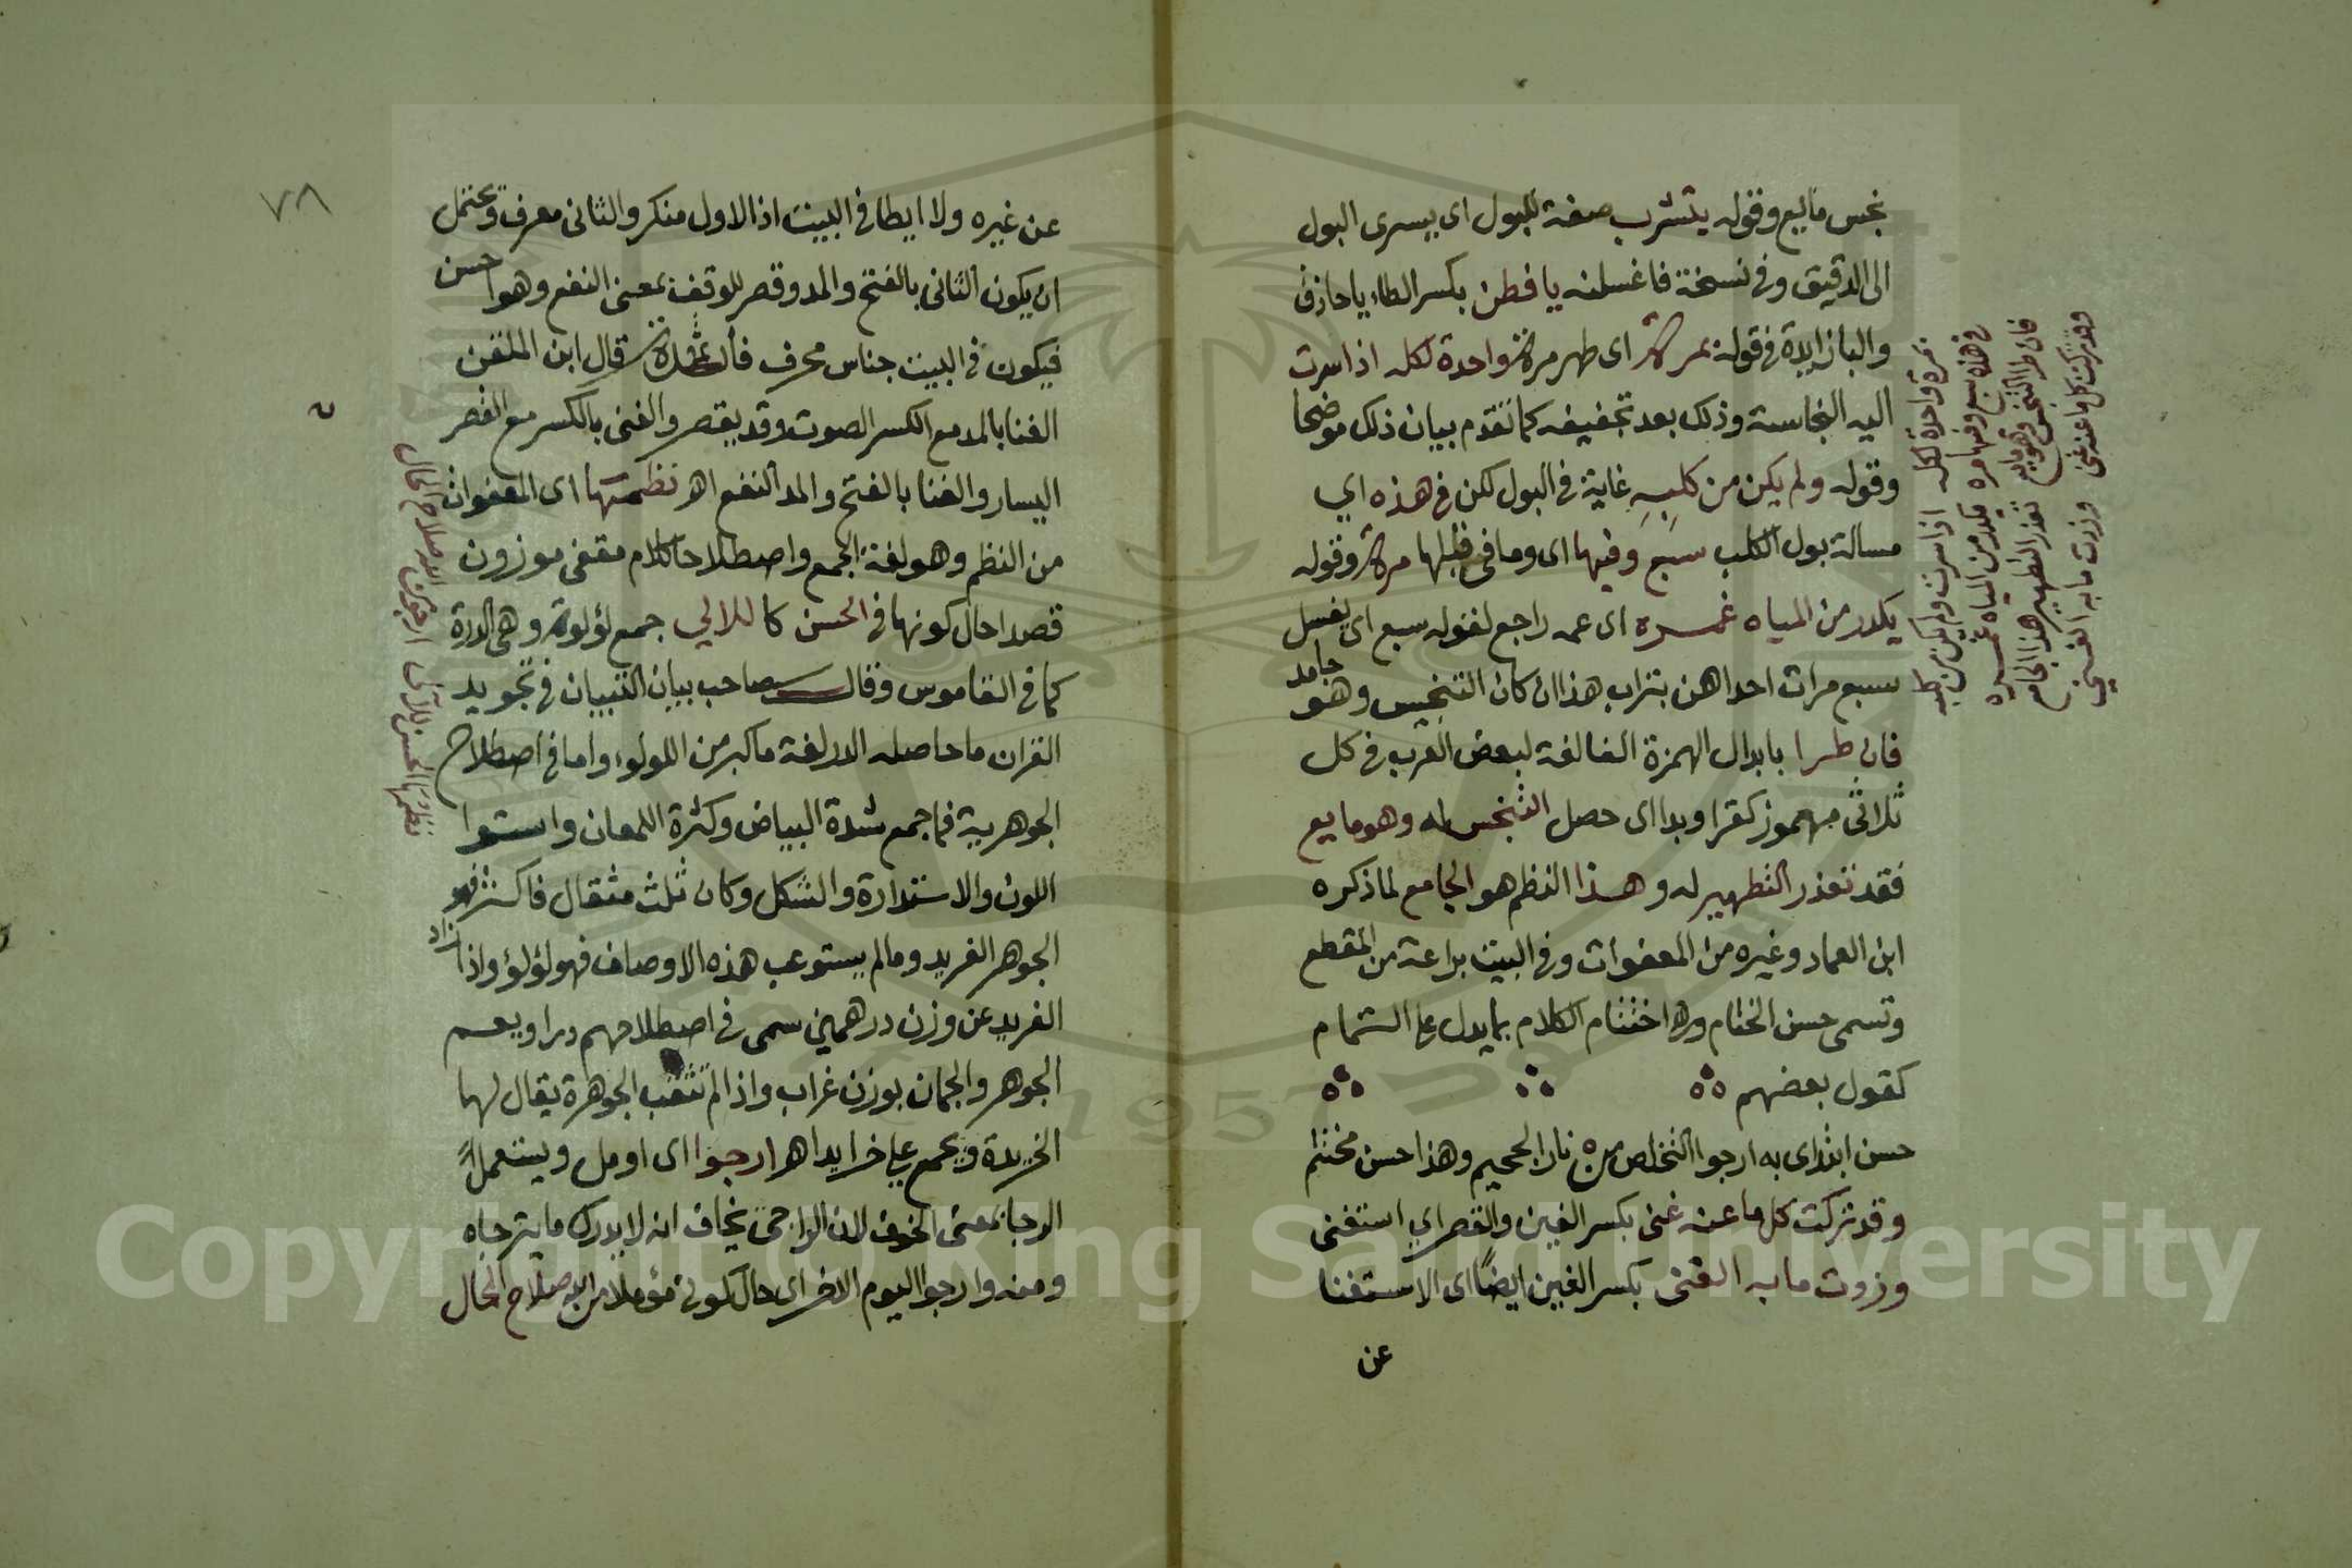 نجس مايع وقوله يتشرب صفة للبول اى يسرى البول
الى الدقيق وفى نسخة فاغسلنه يا فطن بكسر الطاء يا حاذق
والبا زايدة فى قوله بمرة اى طهر مرة واحدة لكله اذا سرت
اليه النجاسة وذلك بعد تجفيفه كما تقدم بيان ذلك موضحا
وقوله ولم يكن من كلبه غاية فى البول لكن فى هذه اي
مسالة بول الكلب سبع وفيها اى وما فى قبلها مرة وقوله
يكدر من المياه غمره اى عمه راجع لقوله سبع اى يغسل
سبع مرات احداهن بتراب هذا ان كان التنجيس وهو جامد
فان طرا بابدال الهمزة الفا لغة لبعض العرب فى كل
ثلاثى مهموز كقرا وبدا اى حصل التنجس له وهو مايع
فقد تعذر التطهير له وهذا النظم هو الجامع لما ذكره
ابن العماد وغيره من المعفوات وفى البيت براعة من المقطع
وتسمى حسن الختام وهو اختتام الكلام بما يدل على التمام
كقول بعضهم
حسن ابتداى به ارجوا التخلص من نار الجحيم وهذا حسن مختتم
وقد تركت كل ما عنه غنى بكسر الغين والقصر اي استغنى
وزوت ما به الغنى بكسر الغين ايضاً اى الاستغنا
عن
مرة واحدة لكله اذا سرت ولم يكن من كلبه
فى هذه سبع وفيها مره يكدر من المياه غمره
فان طرا التنجس وهو مايع تعذر التطهير هذا الجامع
وقد تركت كل ما عنه غنى وزدت ما به الغنى
٧٨
عن غيره ولا ايطا فى البيت اذ الاول منكر والثانى معرف ويحتمل
ان يكون الثانى بالفتح والمد وقصر للوقف بمعنى النفع وهو احسن
فيكون فى البيت جناس محرف قال ابن الملقن
الغنا بالمد مع الكسر الصوت وقد يقصر والغنى بالكسر مع القصر
اليسار والغنا بالفتح والمد النفع اهـ نظمتها اى المعفوات
من النظم وهو لغة الجمع واصطلاحا كلام مقفى موزون
قصدا حال كونها فى الحسن كاللالي جمع لؤلؤة وهى الدرة
كما فى القاموس وقال صاحب بيان التبيان فى تجويد
القران ما حاصله الدر لغة ما كبر من اللولو واما فى اصطلاح
الجوهرية فما جمع شدة البياض وكثرة اللمعان واستوا
اللون والاستدارة والشكل وكان ثلث مثقال فاكثر فهو
الجوهر الفريد وما لم يستوعب هذه الاوصاف فهو لؤلؤ واذا زاد
الفريد عن وزن درهمين سمى فى اصطلاحهم درا ويعم
الجوهر والجمان بوزن غراب واذا لم تثقب الجوهرة يقال لها
الخريدة ويجمع على خرايد اهـ ارجوا اى اومل ويستعمل
الرجا بمعنى الخوف لان الراجى يخاف انه لا يدرك ما يترجاه
ومنه وارجوا اليوم الاخر اى حال كونى مؤملا من الله صلاح الحال
نظمتها فى الحسن كاللآلى ارجوا من الله صلاح الحال